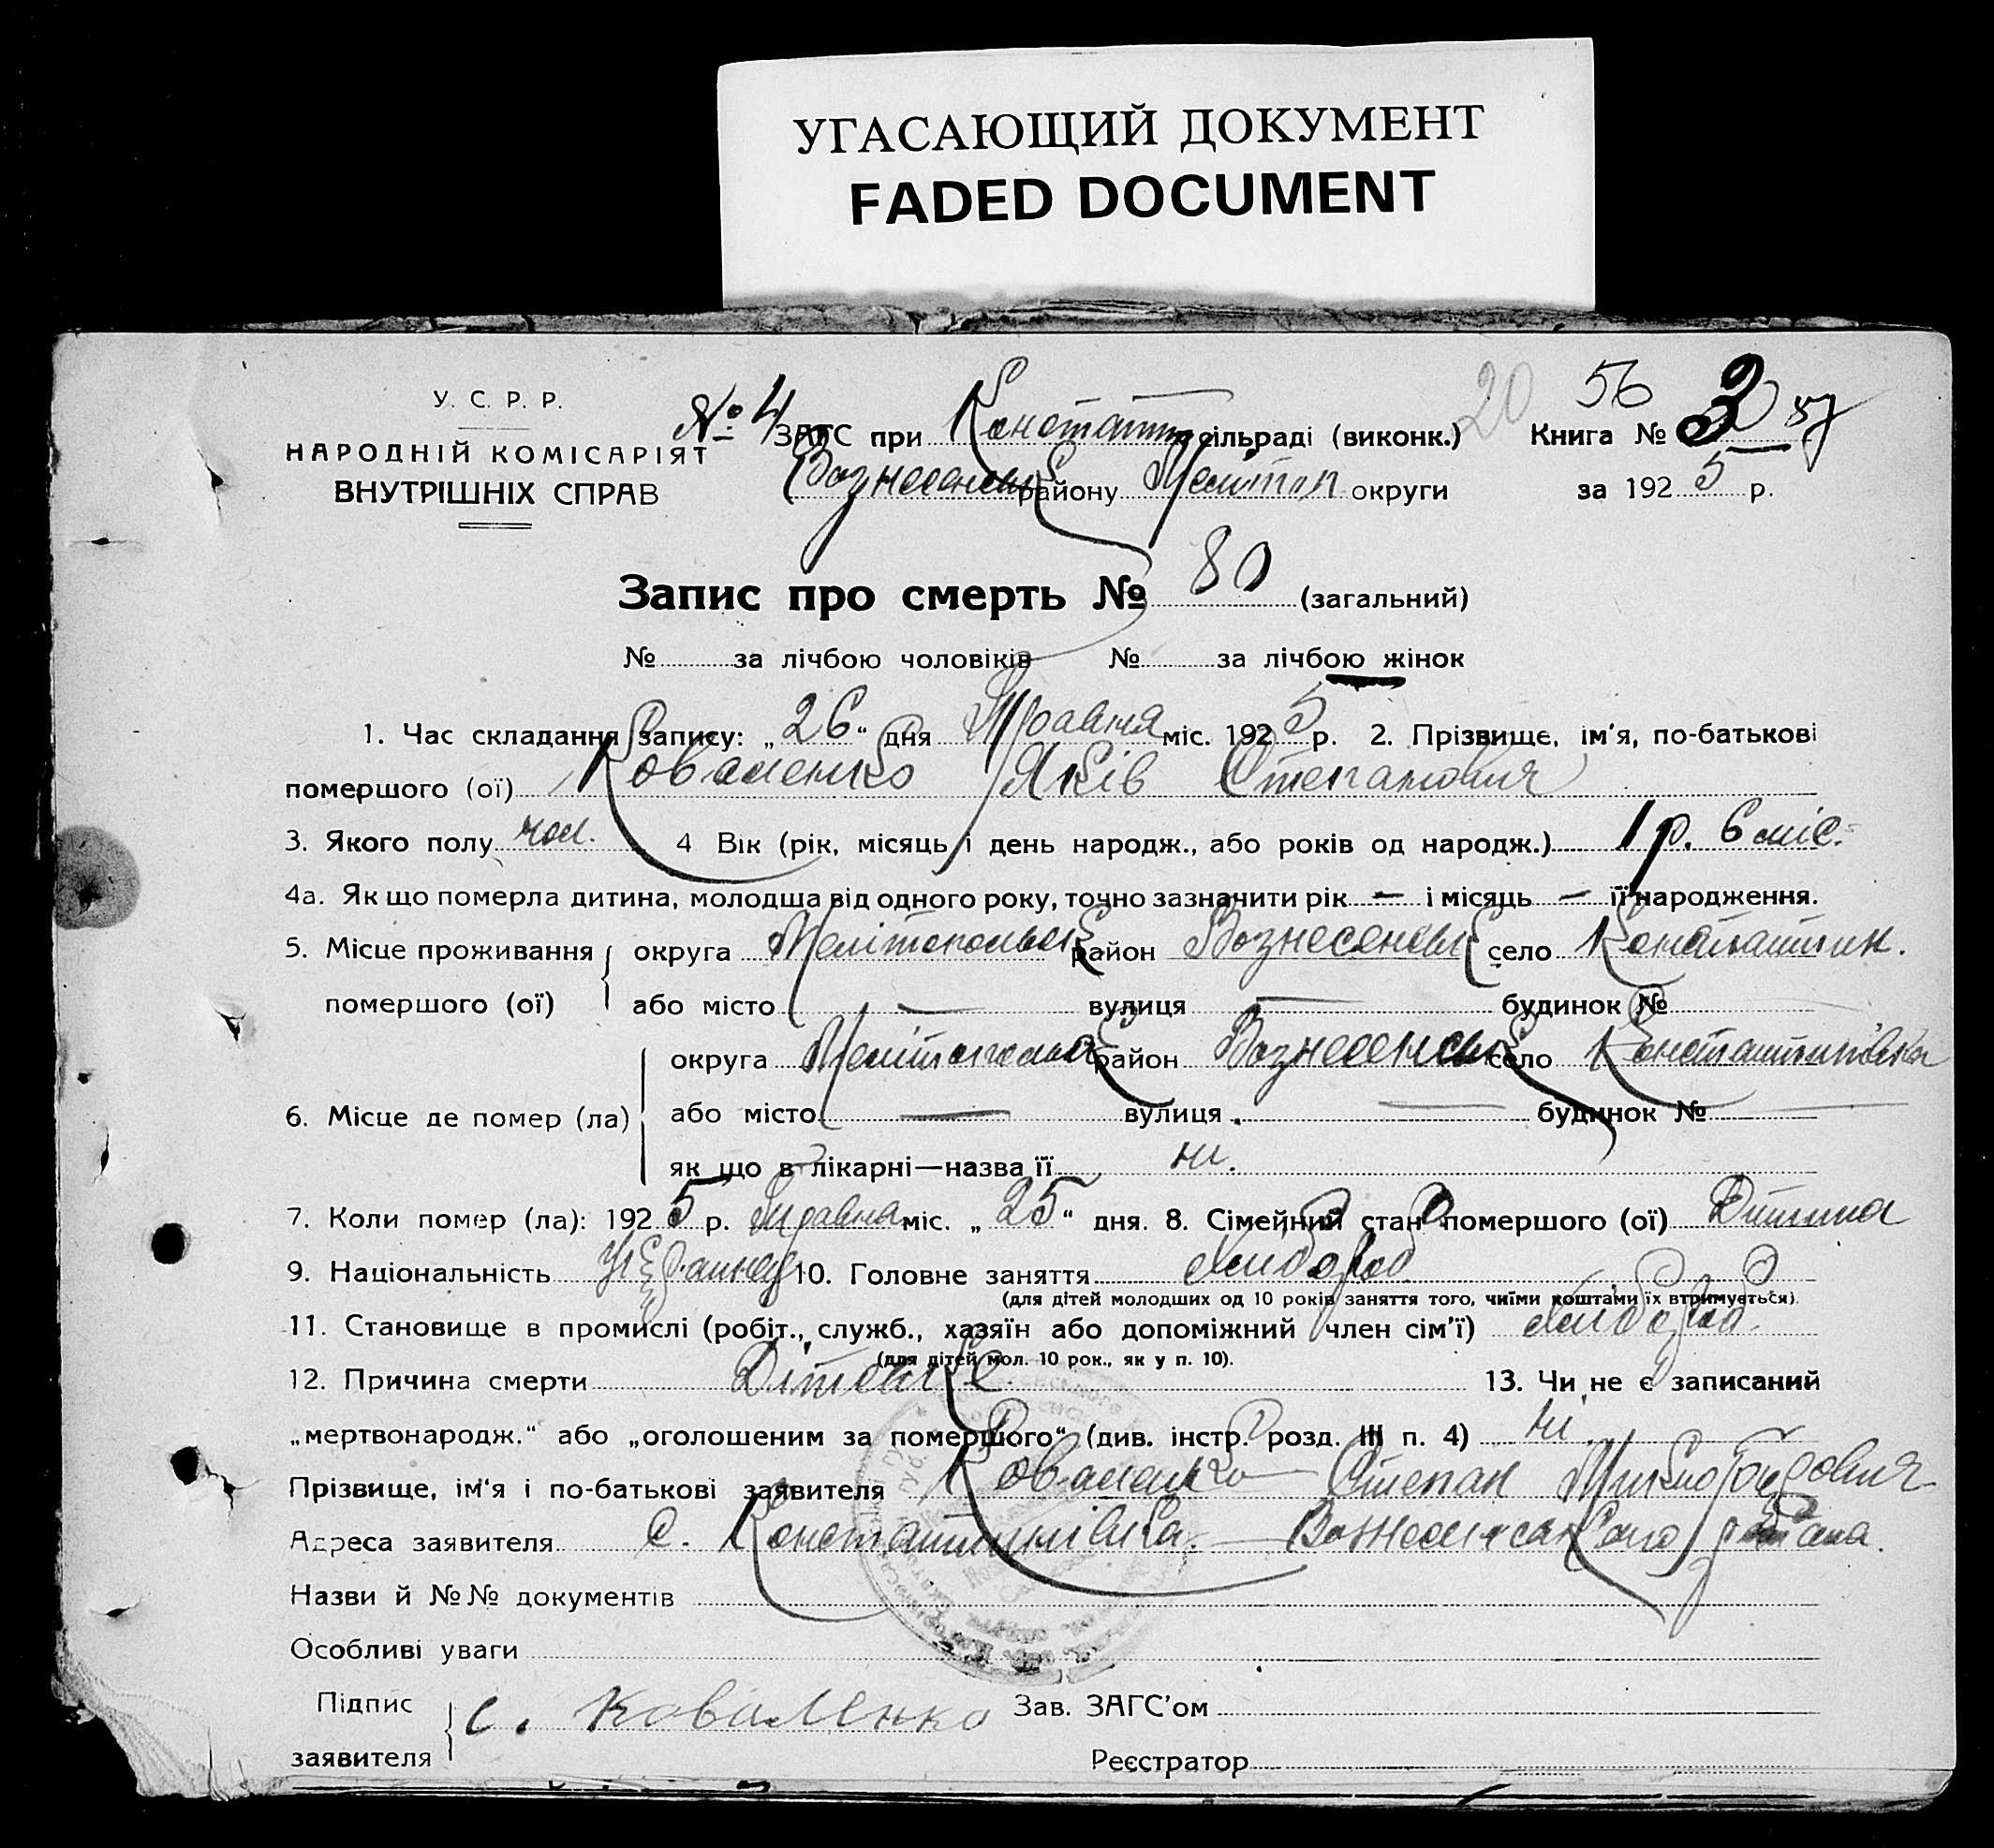 УГАСАЮЩИЙ ДОКУМЕНТ
FADED DOCUMENT
У. С. Р. Р.
НАРОДНІЙ КОМІСАРІЯТ
ВНУТРІШНІХ СПРАВ
№ 4 ЗАГС при Константин сільраді (виконк.) 20 56 Книга № 3 57
Вознесенськ району Меліт округи за 1925 р.
Запис про смерть № 80 (загальний)
№ за лічбою чоловіків № за лічбою жінок
1. Час складання запису: „26“ дня Травня міс. 1925 р. 2. Прізвище, ім'я, по-батькові
помершого (ої) Коваленко Яків Степанович
3. Якого полу чол. 4 Вік (рік, місяць і день народж., або років од народж.) 1 р. 6 міс.
4а. Як що померла дитина, молодша від одного року, точно зазначити рік — і місяць — її народження.
5. Місце проживання помершого (ої) округа Мелітопольск район Вознесенськ село Константин.
або місто — вулиця — будинок №
6. Місце де помер (ла) округа Мелітопольск район Вознесенськ село Константинівка
або місто — вулиця — будинок № —
як що в лікарні—назва її ні.
7. Коли помер (ла): 1925 р. Травня міс. „25“ дня. 8. Сімейний стан помершого (ої) Дитина
9. Національність Українец 10. Головне заняття Хлібороб
(для дітей молодших од 10 років заняття того, чиїми коштами їх втримується).
11. Становище в промислі (робіт., служб., хазяїн або допоміжний член сім'ї) Хлібороб.
(для дітей мол. 10 рок., як у п. 10).
12. Причина смерти 13. Чи не є записаний
„мертвонародж.“ або „оголошеним за помершого“ (див. інстр. розд. III п. 4) ні.
Прізвище, ім'я і по-батькові заявителя Коваленко Степан
Адреса заявителя с. Константинівка. Вознесенского района.
Назви й №№ документів
Особливі уваги
Підпис заявителя С. Коваленко Зав. ЗАГС'ом
Реєстратор